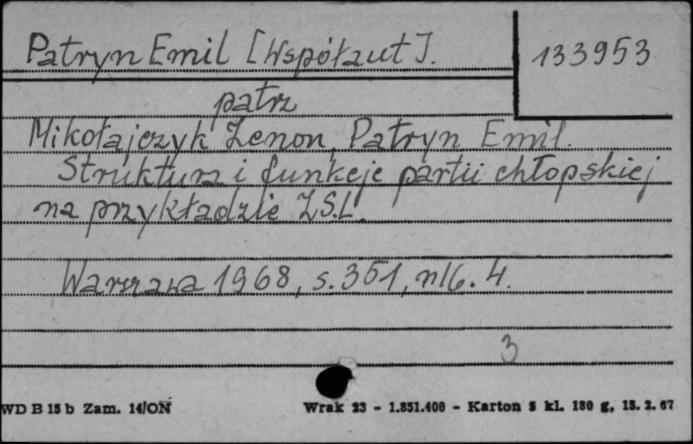 Patryn Emil [Współaut].
133953
patrz
Mikołajczyk Zenon, Patryn Emil.
Struktura i funkcje partii chłopskiej
na przykładzie ZSL.
Warszawa 1968, s. 351, nlb. 4.
3
WD B 15 b Zam. 14/ON
Wrak 23 - 1.851.400 - Karton 5 kl. 180 g, 15. 2. 67